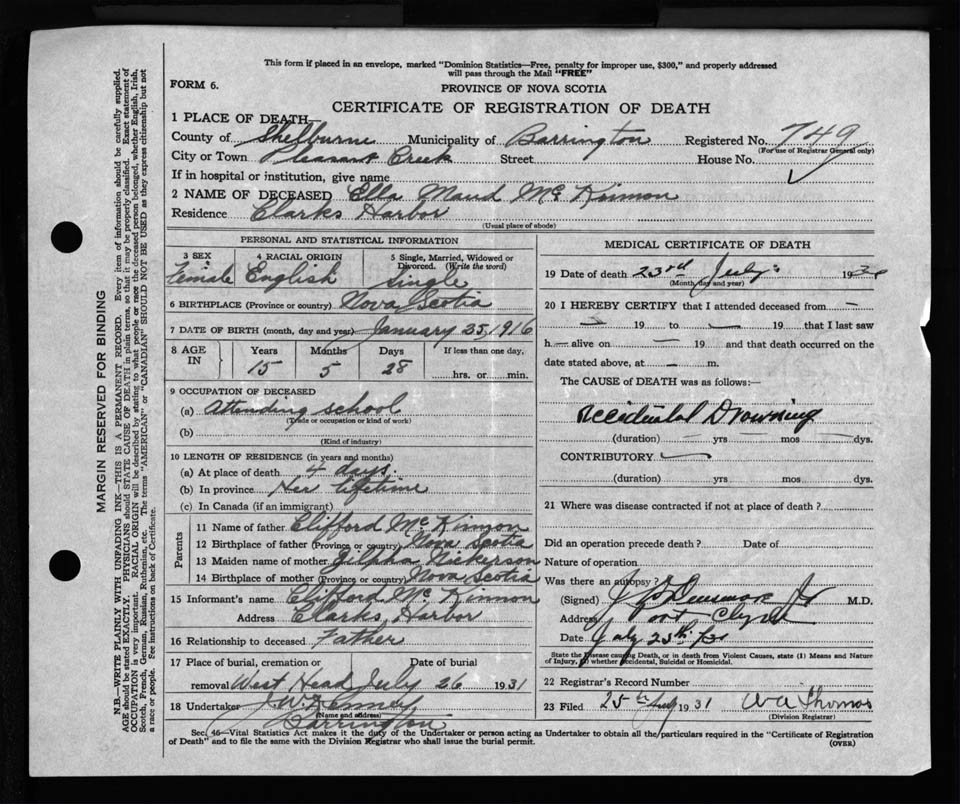 This form if placed in an envelope, marked "Dominion Statistics—Free, penalty for improper use, $300," and properly addressed
will pass through the Mail "FREE"
FORM 6.
PROVINCE OF NOVA SCOTIA
CERTIFICATE OF REGISTRATION OF DEATH
1 PLACE OF DEATH—
County of Shelburne Municipality of Barrington Registered No. 749
(For use of Registrar General only)
City or Town Pleasant Creek Street House No.
If in hospital or institution, give name
2 NAME OF DECEASED Ella Maud McKinnon
Residence Clarks Harbor
(Usual place of abode)
PERSONAL AND STATISTICAL INFORMATION
3 SEX Female
4 RACIAL ORIGIN English
5 Single, Married, Widowed or Divorced. (Write the word) Single
6 BIRTHPLACE (Province or country) Nova Scotia
7 DATE OF BIRTH (month, day and year) January 25, 1916
8 AGE IN Years 15 Months 5 Days 28 If less than one day, hrs. or min.
9 OCCUPATION OF DECEASED
(a) Attending school
(Trade or occupation or kind of work)
(b)
(Kind of industry)
10 LENGTH OF RESIDENCE (in years and months)
(a) At place of death 4 days.
(b) In province Her lifetime
(c) In Canada (if an immigrant)
Parents
11 Name of father Clifford McKinnon
12 Birthplace of father (Province or country) Nova Scotia
13 Maiden name of mother Nickerson
14 Birthplace of mother (Province or country) Nova Scotia
15 Informant's name Clifford McKinnon
Address Clarks Harbor
16 Relationship to deceased Father
17 Place of burial, cremation or Date of burial
removal West Head July 26 1931
18 Undertaker J.W. Kenney
(Name and address)
Barrington
MEDICAL CERTIFICATE OF DEATH
19 Date of death 23rd July 193
(Month, day and year)
20 I HEREBY CERTIFY that I attended deceased from —
— 19 to — 19 that I last saw
h— alive on — 19 and that death occurred on the
date stated above, at — m.
The CAUSE of DEATH was as follows:—
Accidental Drowning
(duration) — yrs — mos — dys.
CONTRIBUTORY
(duration) yrs mos dys.
21 Where was disease contracted if not at place of death?
Did an operation precede death? Date of
Nature of operation
Was there an autopsy?
(Signed) M.D.
Address Port Clyde
Date July 25th
State the Disease causing Death, or in death from Violent Causes, state (1) Means and Nature
of Injury, (2) whether Accidental, Suicidal or Homicidal.
22 Registrar's Record Number
23 Filed 25th 1931 W A Thomas
(Division Registrar)
Sec. 46—Vital Statistics Act makes it the duty of the Undertaker or person acting as Undertaker to obtain all the particulars required in the "Certificate of Registration
of Death" and to file the same with the Division Registrar who shall issue the burial permit.
(OVER)
MARGIN RESERVED FOR BINDING
N.B.—WRITE PLAINLY WITH UNFADING INK—THIS IS A PERMANENT RECORD. Every item of information should be carefully supplied.
AGE should be stated EXACTLY. PHYSICIANS should STATE CAUSE OF DEATH in plain terms, so that it may be properly classified. Exact statement of
OCCUPATION is very important. RACIAL ORIGIN will be described by stating to what people or race the deceased person belonged, whether English, Irish,
Scotch, French, German, Russian, Ruthenian, etc. The terms "AMERICAN" or "CANADIAN" SHOULD NOT BE USED as they express citizenship but not
a race or people. See instructions on back of Certificate.